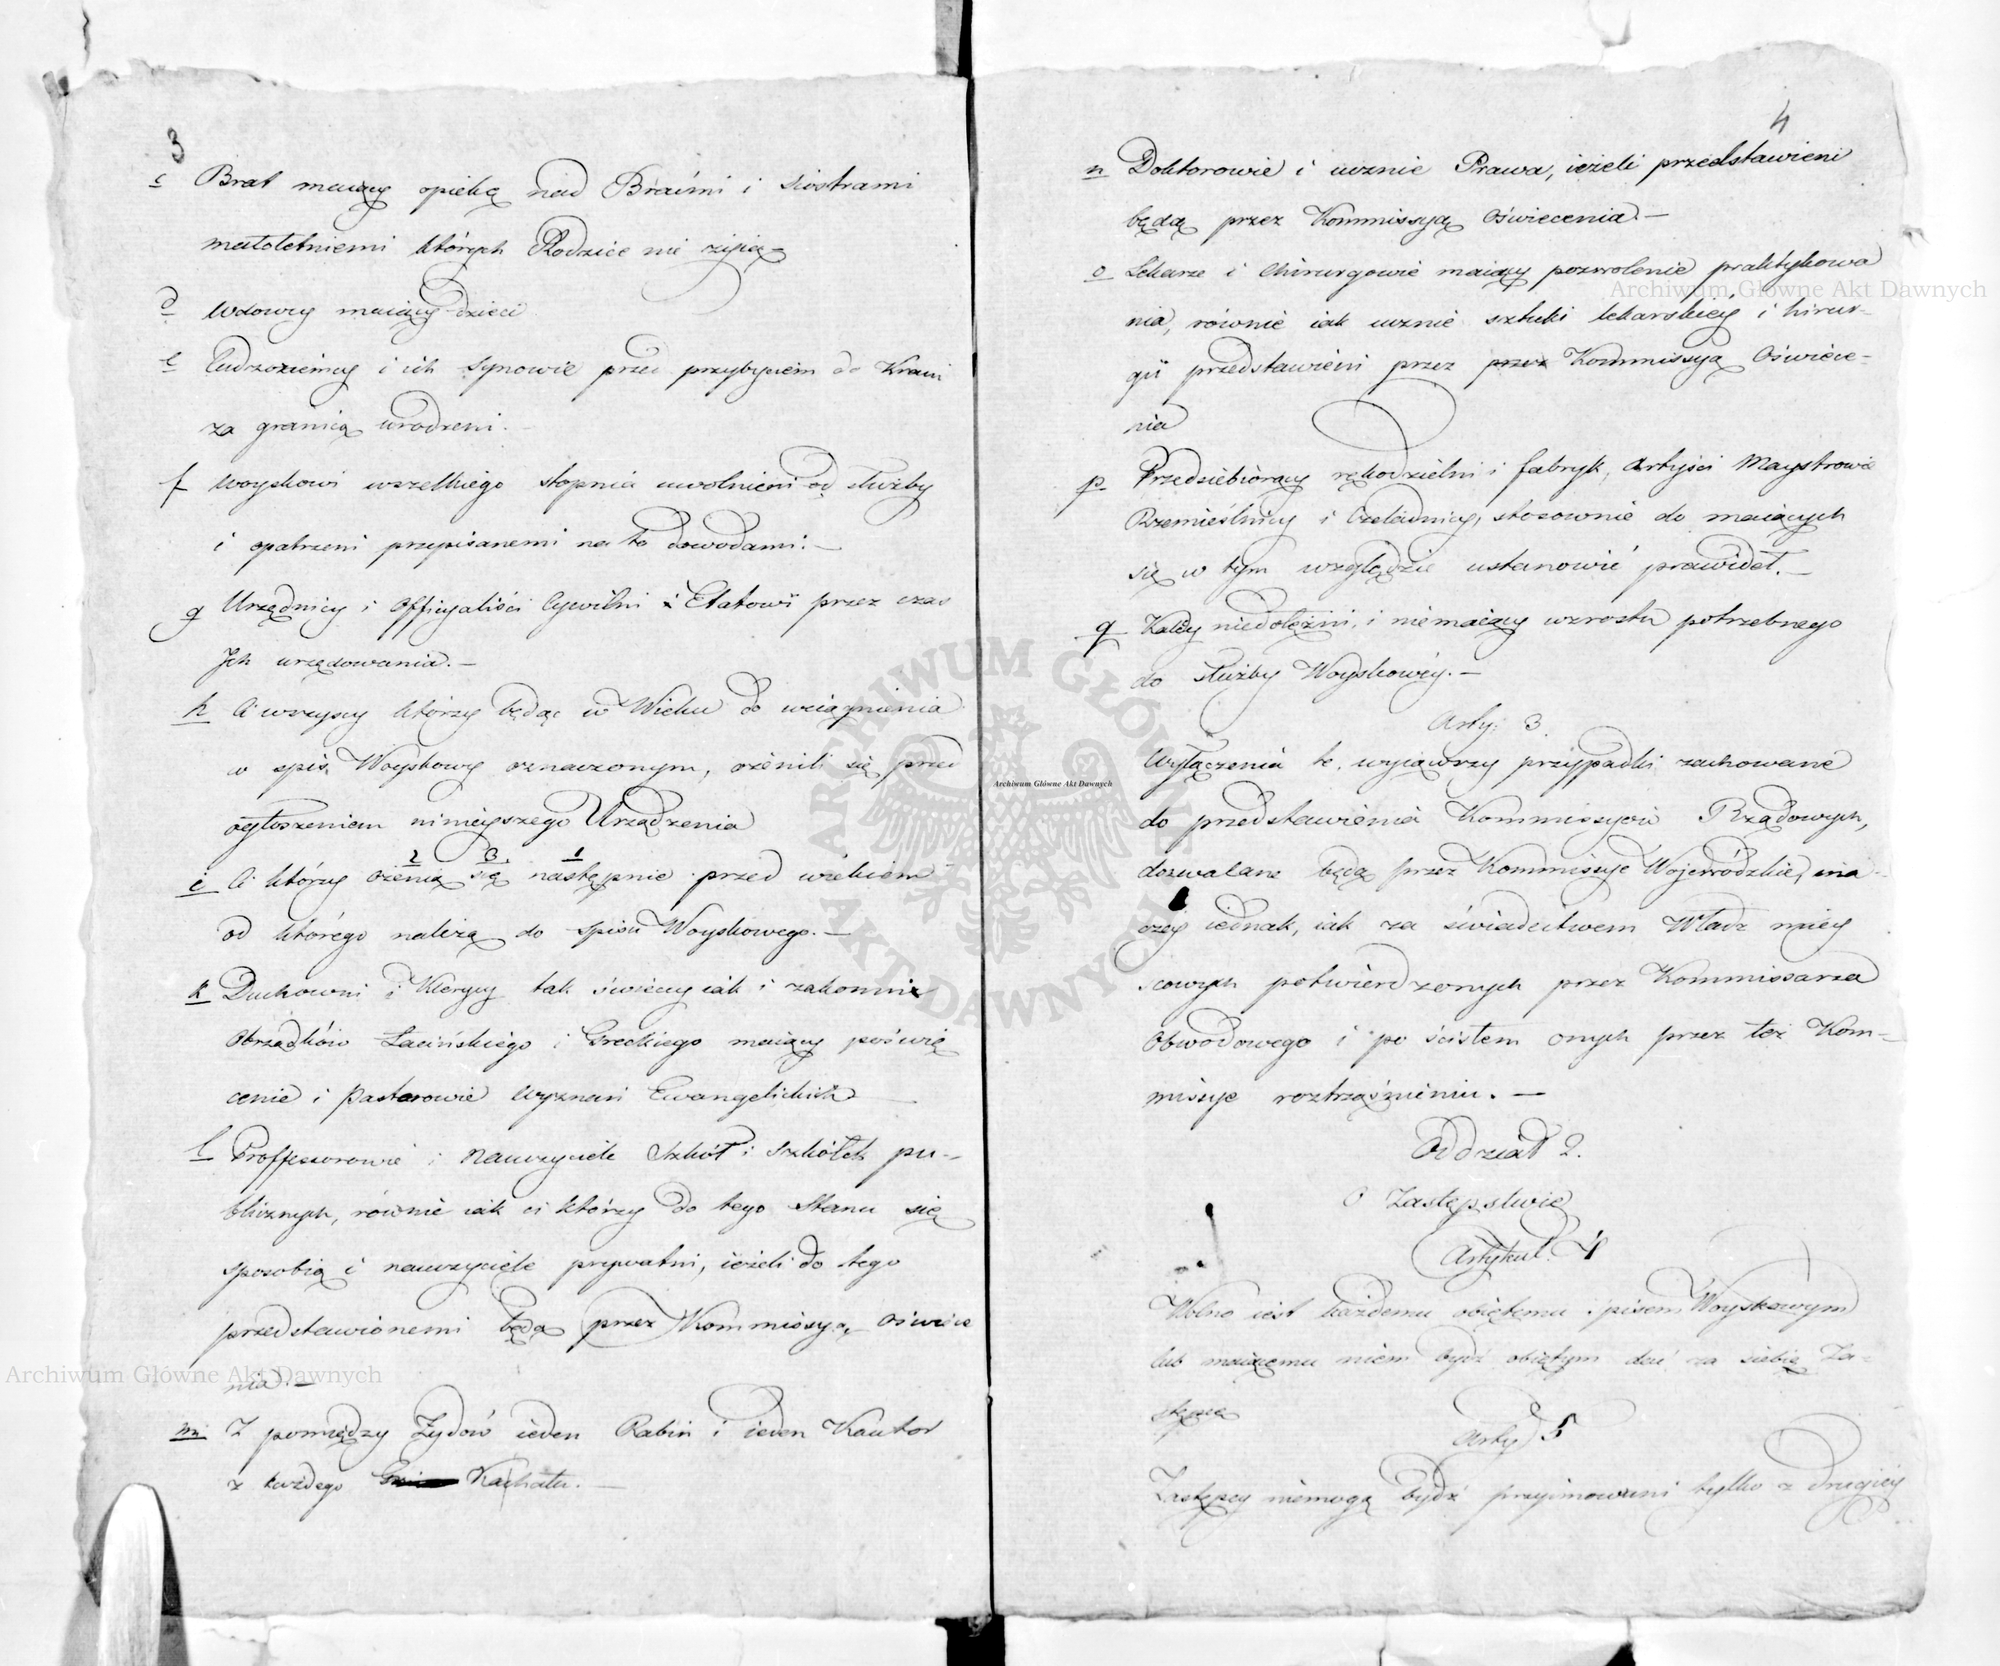 3
c Brat maiący opiekę nad Braćmi i siostrami
małoletniemi których Rodzice nie żyią
d Wdowcy maiący dzieci
e Cudzoziemcy i ich Synowie przed przybyciem do Kraiu
za granicą urodzeni.
f Woyskowi wszelkiego stopnia uwolnieni od służby
i opatrzeni przepisanemi na to dowodami.—
g Urzędnicy i Officyaliści Cywilni i Etatowi przez czas
Ich urzędowania.—
h Ci wszyscy którzy będąc w Wieku do wciągnienia
w spis Woyskowy oznaczonym, ożenili się przed
ogłoszeniem ninieyszego Urządzenia
2 3. 1
i Ci którzy ożenią się następnie przed wiekiem
od którego należą do spisu Woyskowego.—
k Duchowni i Klerycy tak świeccy iak i zakonni
Obrządków Łacińskiego i Greckiego maiący poświę
cenie i Pastorowie Wyznań Ewangelickich
l Professorowie i Nauczyciele Szkół i Szkółek pu-
blicznych, równie iak ci którzy do tego Stanu się
sposobią i nauczyciele prywatni, ieżeli do tego
przedstawionemi będą przez Kommissyą Oświece
nia.—
m Z pomiędzy Żydów ieden Rabin i ieden Kantor
z każdego Kachału.—
4
n Doktorowie i ucznie Prawa, ieżeli przedstawieni
będą przez Kommissyą Oświecenia.—
o Lekarze i Chirurgowie maiący pozwolenie praktykowa
nia, równie iak ucznie sztuki lekarskiey i hirur-
gii przedstawieni przez przez Kommissyą Oświece-
nia
p Przedsiębiorcy rękodzielni i fabryk, Artyści Maystrowie
Rzemieślnicy i Czeladnicy, stosownie do maiących
się w tym względzie ustanowić prawideł.—
q Kalecy niedołężni, i niemaiący wzrostu potrzebnego
do służby Woyskowey.—
Arty: 3.
Wyłączenia te, wyiąwszy przypadki zachowane
do przedstawienia Kommissyów Rządowych,
dozwalane będą przez Kommissye Wojewódzkie, ina-
czey iednak, iak za świadectwem Władz miey
scowych potwierdzonych przez Kommissarza
Obwodowego i po ścisłem onych przez też Kom-
missye roztrząśnieniu.—
Oddział 2.
O Zastępstwie
Artykuł. 4
Wolno iest każdemu obiętemu spisem Woyskowym
lub maiącemu niem bydź obiętym dać za siebie Za-
stępcę
Arty 5
Zastępcy niemogą bydź przyimowani tylko z drugiey
Archiwum Główne Akt Dawnych
Archiwum Główne Akt Dawnych
Archiwum Główne Akt Dawnych
ARCHIWUM GŁÓWNE AKT DAWNYCH